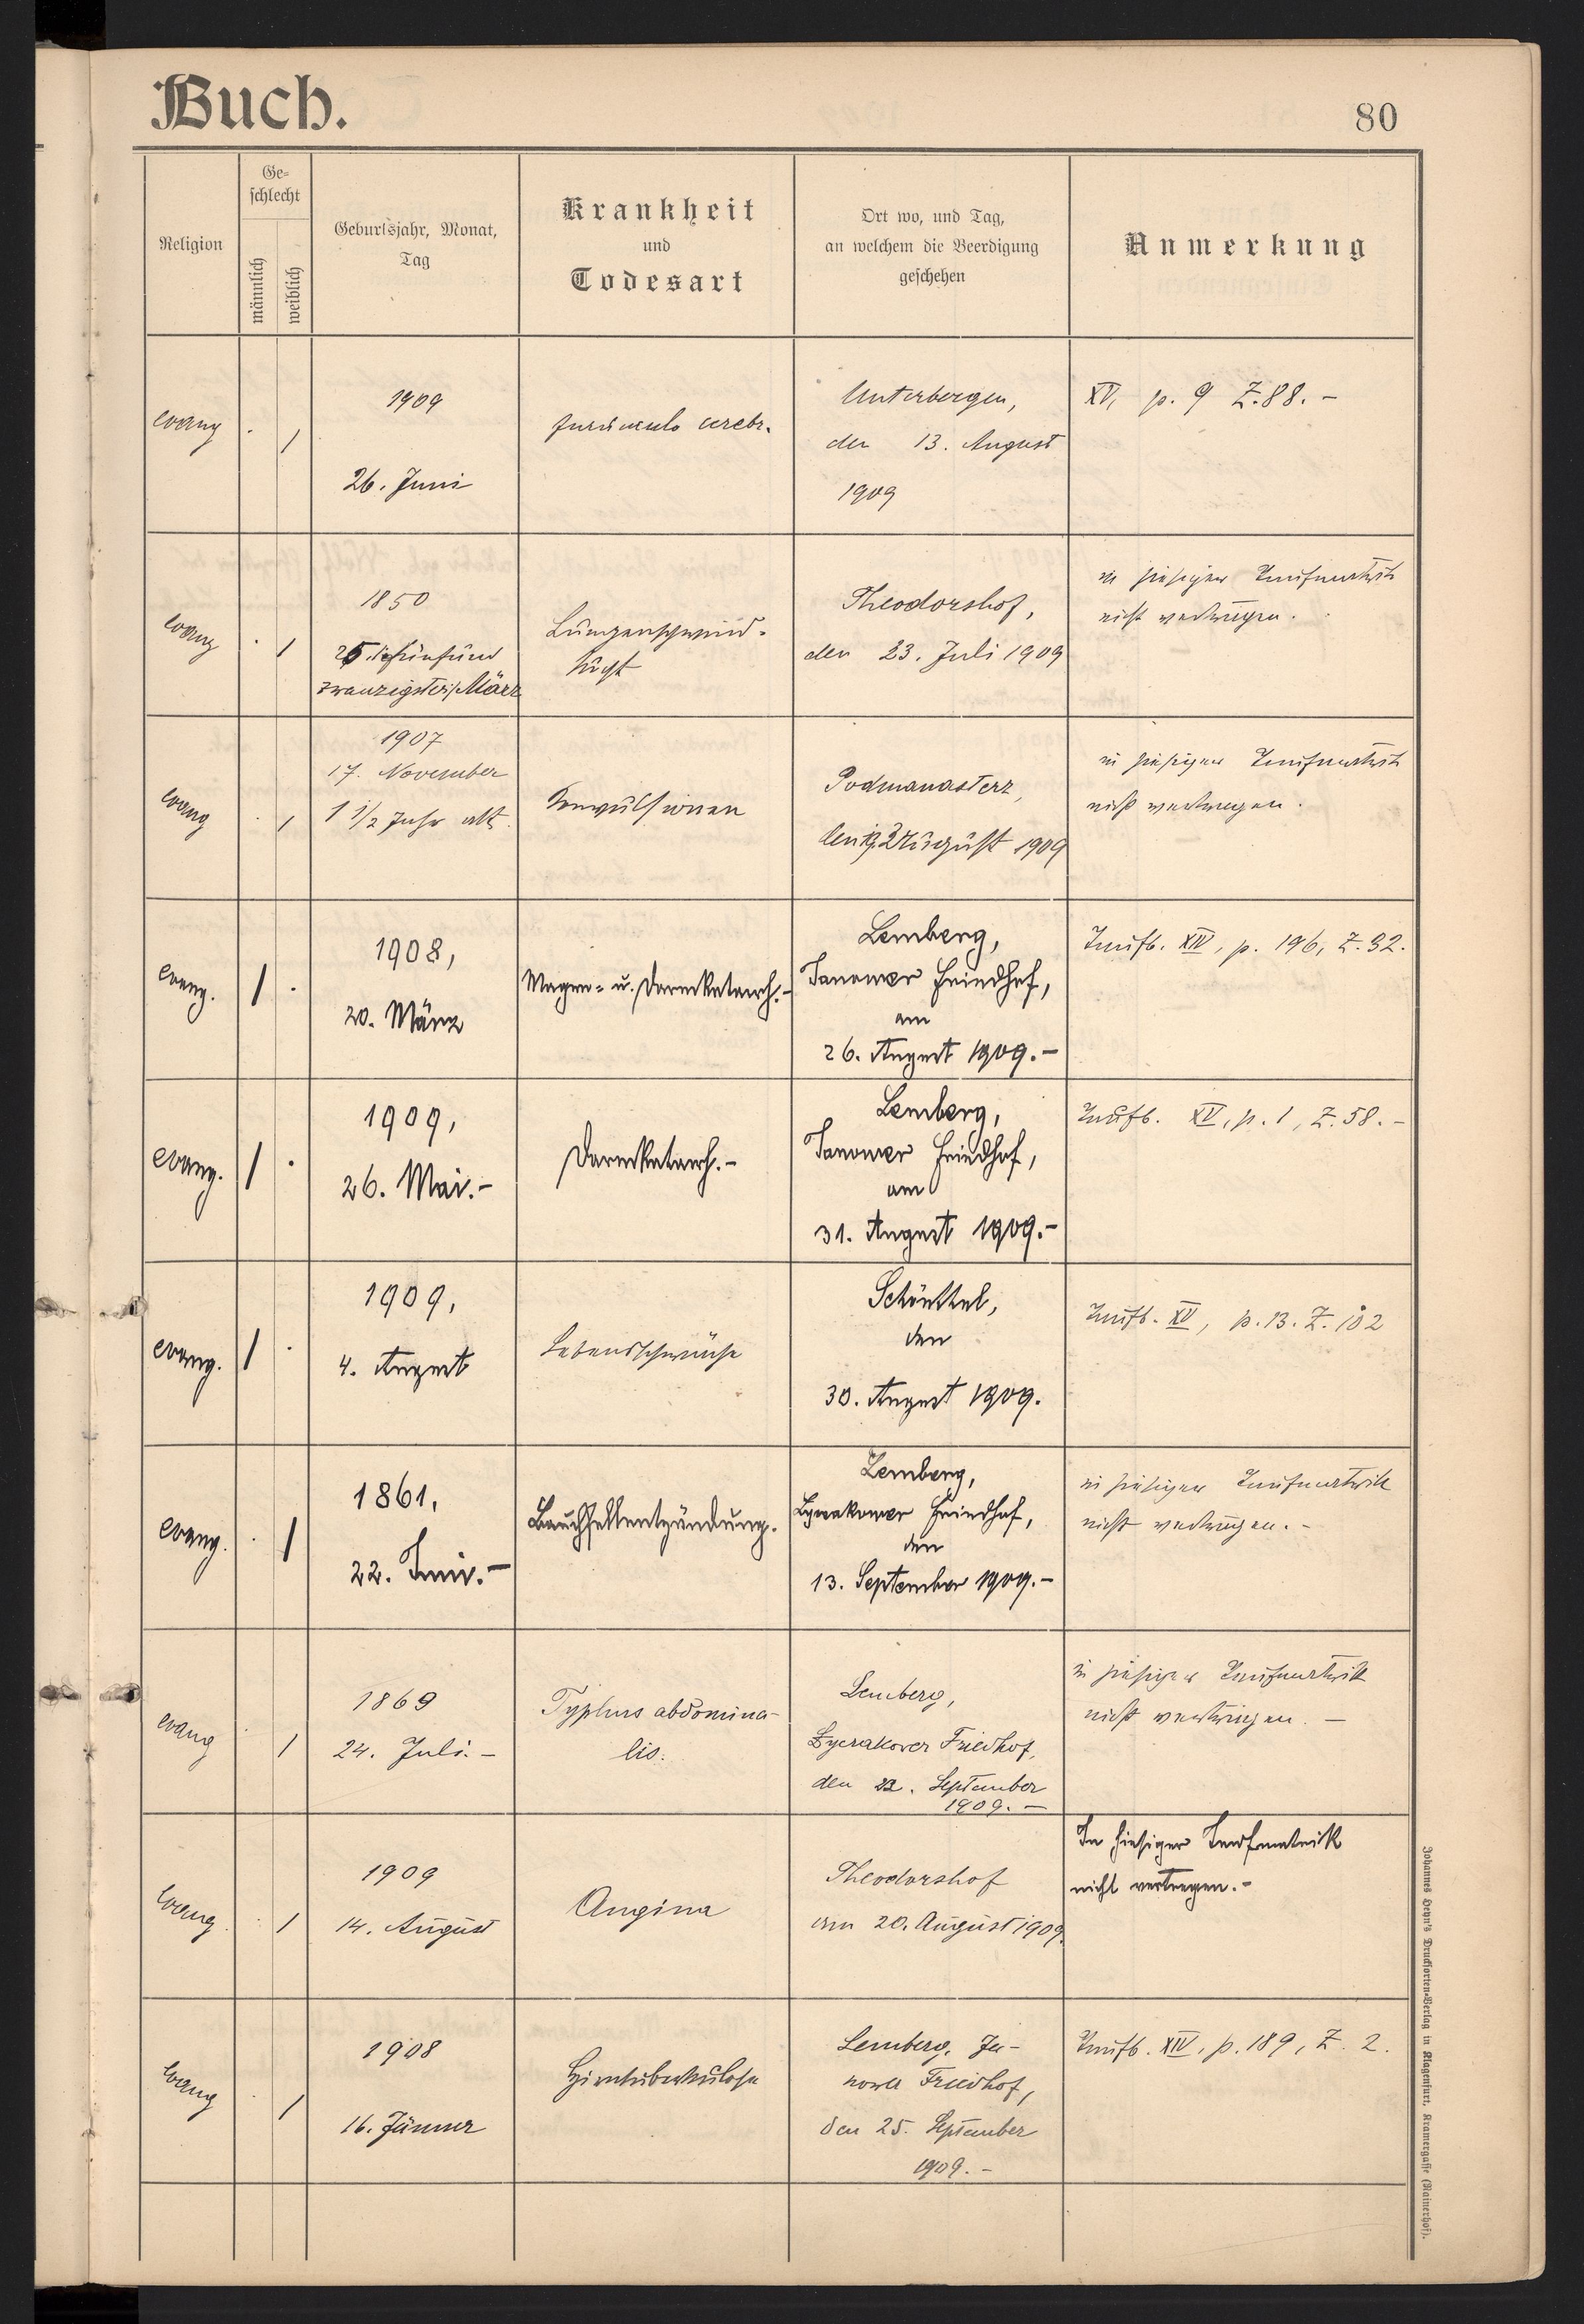 Buch.
80
Religion
Ge-
schlecht
männlich
weiblich
Geburtsjahr, Monat,
Tag
Krankheit
und
Todesart
Ort wo, und Tag,
an welchem die Beerdigung
geschehen
Anmerkung
evang
.
1
1909
26. Juni
cerebr.
Unterbergen,
den 13. August
1909
XV, p. 9 Z. 88. -
evang
.
1
1850
25. /:fünfund
zwanzigster:/ März
Lungenschwind-
sucht
Theodorshof,
den 23. Juli 1909
in hiesiger Taufmatrik
nicht vertragen.
evang
.
1
1907
17. November
1 1/2 Jahr alt.
Konvulsionen
Podmanasterz,
den August 1909
in hiesiger Taufmatrik
nicht vertragen.
evang.
1
.
1908,
20. März
Magen- u. Darmkatarrh.-
Lemberg,
Janower Friedhof,
am
26. August 1909.-
Taufb. XIV, p. 196, Z. 32.
evang.
1
.
1909,
26. Mai.-
Darmkatarrh.-
Lemberg,
Janower Friedhof,
am
31. August 1909.-
Taufb. XV, p. 1, Z. 58.-
evang.
1
.
1909,
4. August
Lebensschwäche
Schönthal,
den
30. August 1909.
Taufb. XV, p. 13. Z. 102
evang.
.
1
1861,
22. Juni.-
Bauchfellentzündung.
Lemberg,
Lyczakower Friedhof,
den
13. September 1909.-
in hiesiger Taufmatrik
nicht vertragen.-
evang
.
1
1869
24. Juli.-
Typhus abdomina-
lis.
Lemberg,
Łyczakover Friedhof,
den 22. September
1909.-
in hiesiger Taufmatrik
nicht vertragen. -
evang.
.
1
1909
14. August
Angina
Theodorshof
am 20. August 1909.
In hiesiger Taufmatrik
nicht vertragen.-
evang
.
1
1908
16. Jänner
Hirntuberkulose
Lemberg, Ja-
nower Friedhof,
den 25. September
1909.-
Taufb. XIV, p. 189, Z. 2.
Johannes Heyn's Drucksorten-Verlag in Klagenfurt, Kramergasse (Rainerhof).